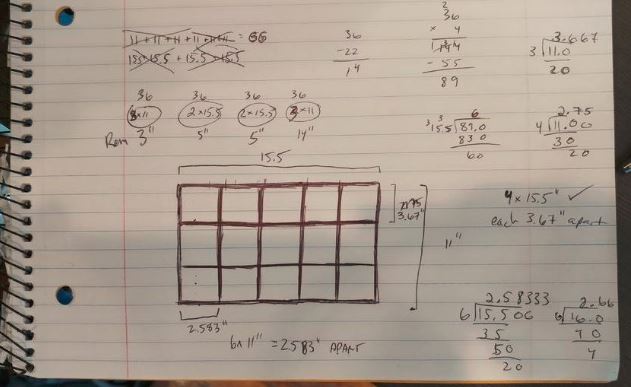 11 + 11 + 11 + 11 + 11 + 11 = 66
15.5 + 15.5 + 15.5 + 15.5
36
-22
14
36
× 4
144
- 55
89
3.667
3 11.0
20
36 36 36 36
3×11 2×15.5 2×15.5 2×11
Rem 3" 5" 5" 14"
6
15.5 89.0
83 0
60
2.75
4 11.00
30
20
15.5
3.67"
11"
4 × 15.5" ✓
each 3.67" apart
2.583"
6×11" = 2.583" APART
2.58333
6 15.500
35
50
20
2.66
6 16.0
40
4